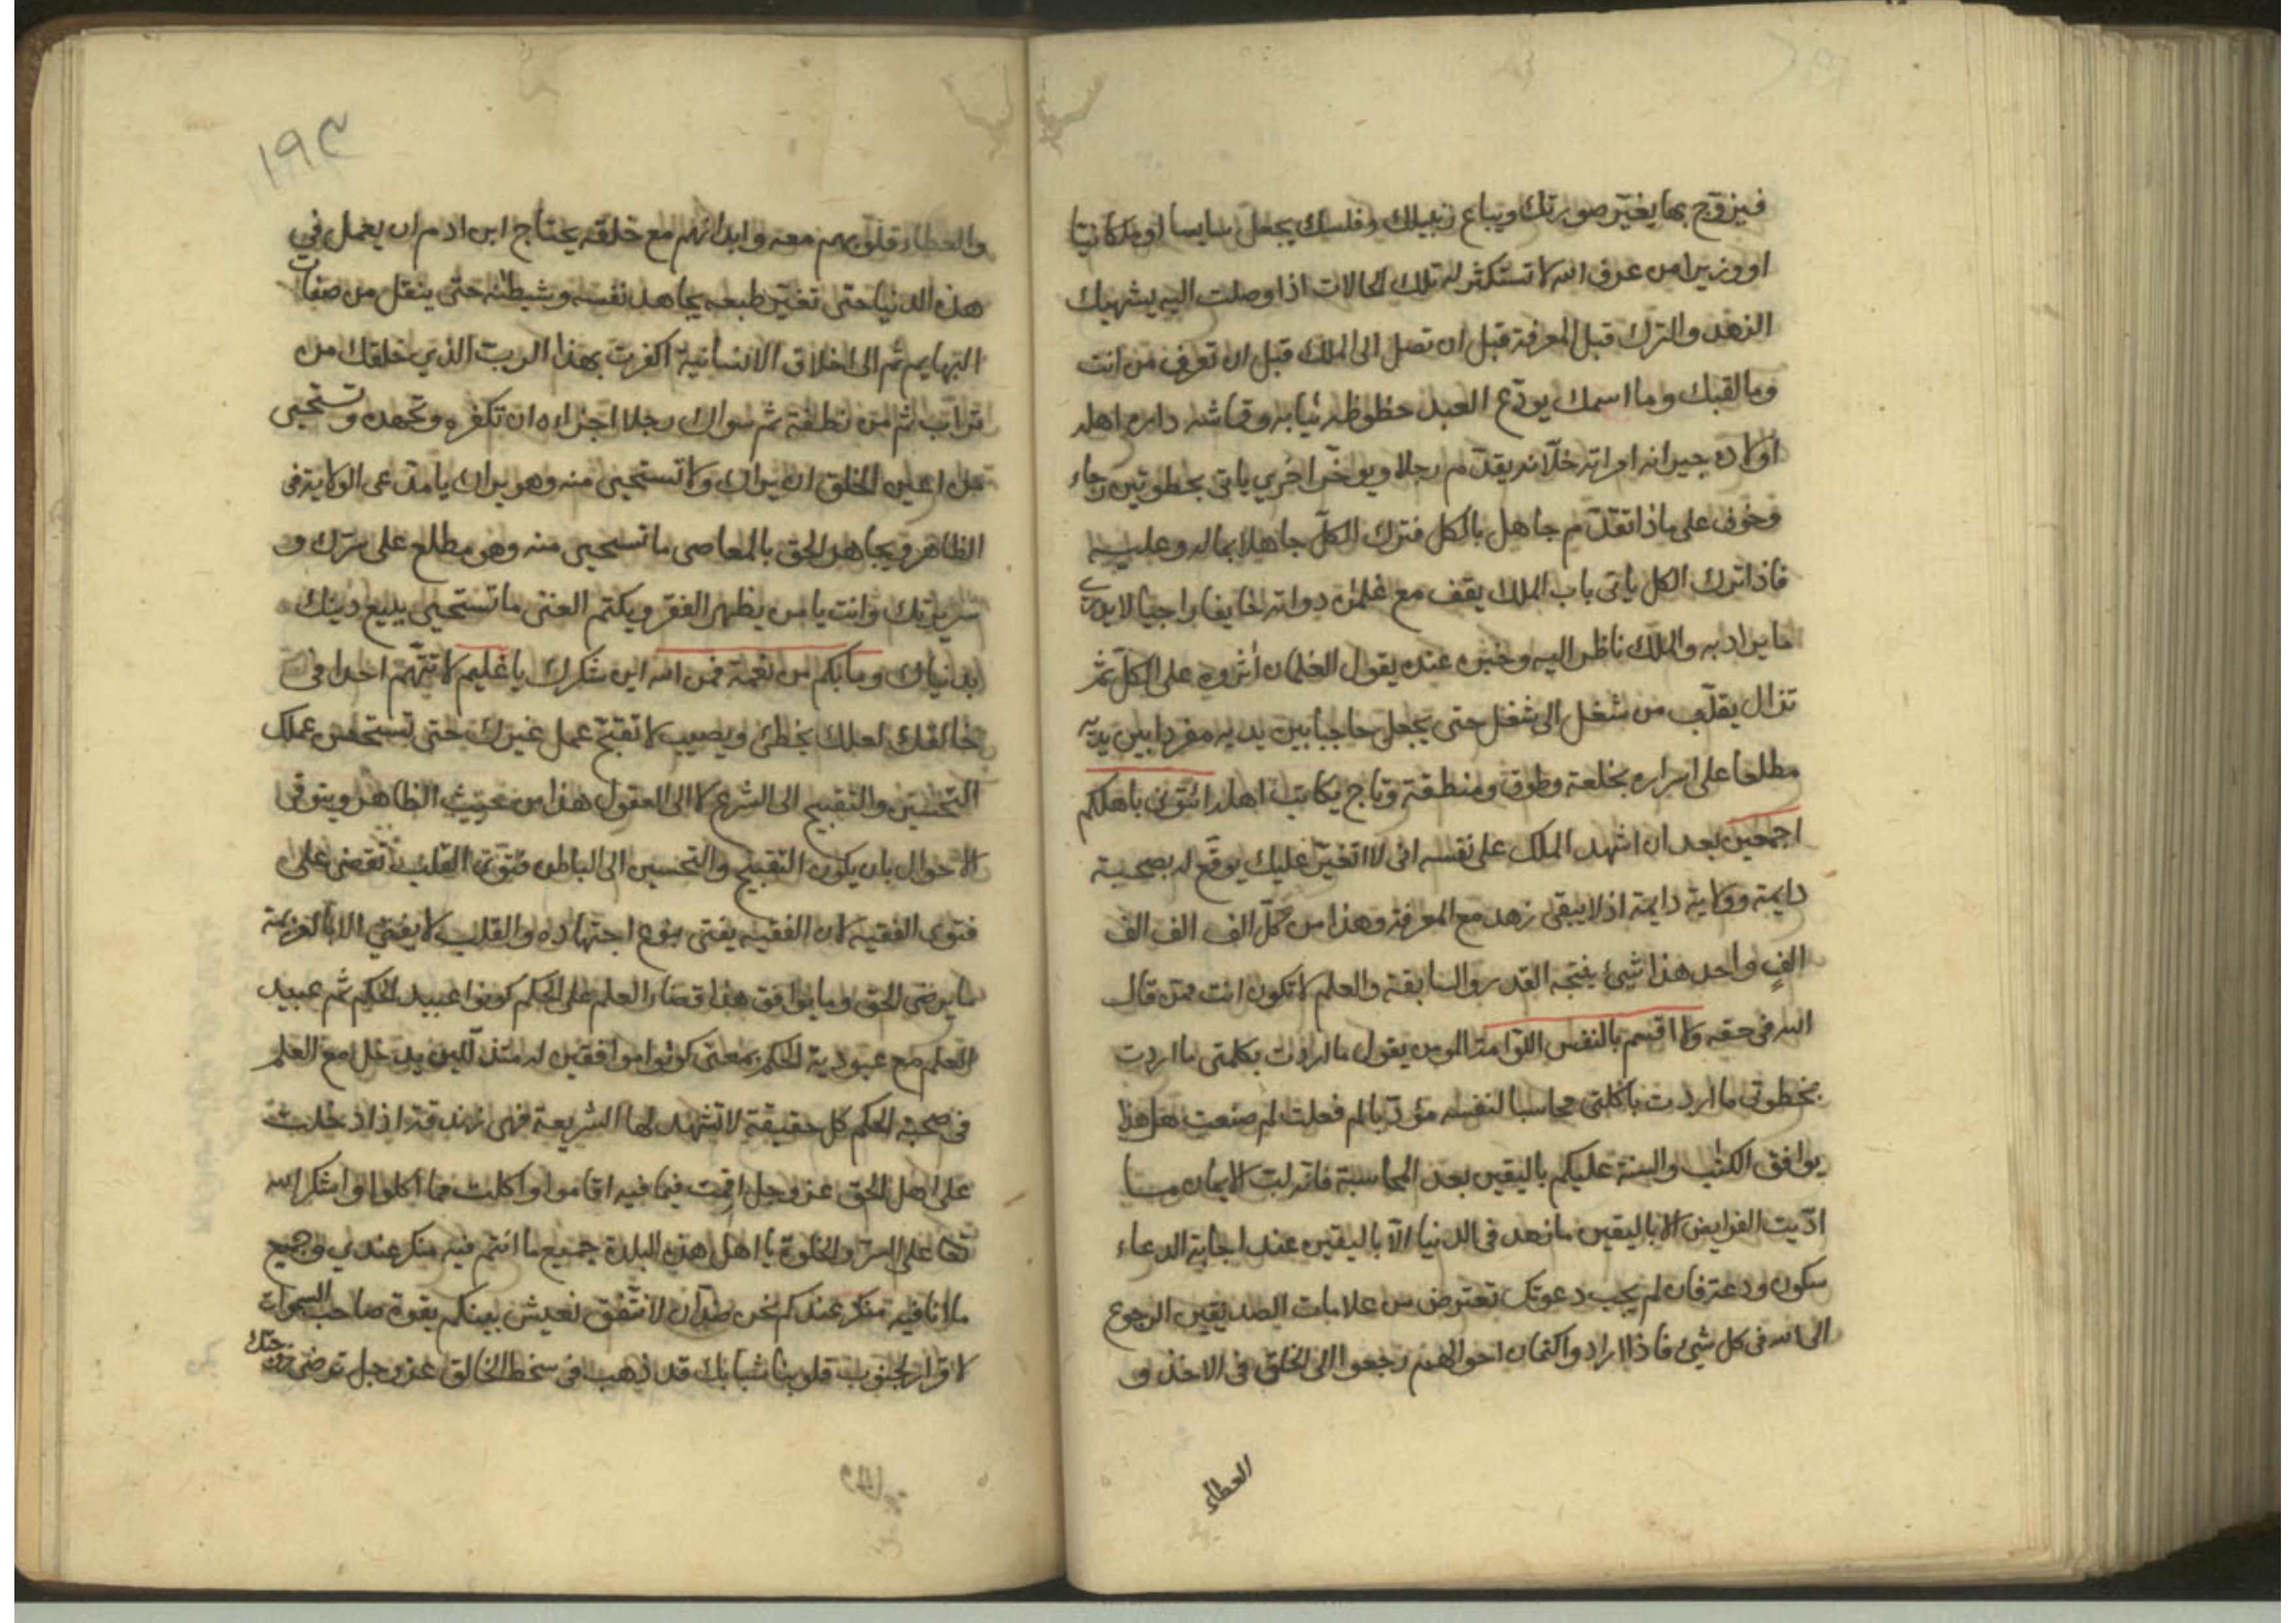 فيزوج بها يغير صورتك ويباع زنبيلك وفلسك يجعل سايسا او مكانيا
او وزيرا من عرف الله لا تستكثر له تلك الحالات اذا وصلت اليه يشهيك
الزهد والترك قبل المعرفة قبل ان تصل الى الملك قبل ان تعرف من انت
وما لقبك وما اسمك يودّع العبد حظوظه ثيابه وقماشه داره اهله
اولاده جيرانه امراته خلّانه يقدّم رجلا ويوخّر اخرى ياتى بخطوتين رجاء
وخوف على ماذا تقدّم جاهل بالكل فترك الكلّ جاهلا بماله وعليه
فاذا ترك الكل ياتى باب الملك يقف مع غلمانه دوابه خايفا راجيا لا يدرى
ما يراد به والملك ناظر اليه وخبره عنده يقول الغلمان اثروه على الكلّ ثم
تزال يقلّب من شغل الى شغل حتى يجعل حاجبا بين يديه مفردا بين يديه
مطلعا على اسراره بخلعة وطوق ومنطقة وتاج يكاتب اهله ائتونى باهلكم
اجمعين بعد ان اشهد الملك على نفسه انى لا اتغيّر عليك يوقّع له بصحبة
دايمة وولاية دايمة اذ لا يبقى زهد مع المعرفة وهذا من كلّ الف الف الف
الفٍ واحد هذا شيئ ينتجه القدر والسابقة والعلم لا تكون انت ممن قال
الله فى حقه ولا اقسم بالنفس اللوّامة المومن يقول ما اردت بكلمتى ما اردت
بخطوتى ما اردت باكلتى محاسبا لنفسه مؤدّبا لم فعلت لم صنعت هل هذا
يوافق الكتٰب والسنة عليكم باليقين بعد المحاسبة فانه لبّ الايمان وما
ادّيت الفرايض الا باليقين ما زهد فى الدنيا الّا باليقين عند اجابة الدعاء
سكون ودعة فان لم يجب دعوتك تعترض من علامات الصديقين الرجوع
الى الله فى كل شيئ فاذا ارادوا كتمان احوالهم رجعوا الى الخلق فى الاخذ و
العطاء
١٩٣
والعطاء قلوبهم معه وابدانهم مع خلقه يحتاج ابن ادم ان يعمل في
هذه الدنيا حتى تغيّر طبعه يجاهد نفسه وشيطٰنه حتى ينقل من صفات
البهايم ثم الى اخلاق الانسانية اكفرت بهذا الربّ الذي خلقك من
تراب ثم من نطفة ثم سواك رجلا اجزاءه ان تكفره وتجحده وتستحيى
من اعين الخلق ان يراك ولا تستحيى منه وهو يراك يا مدّعى الولاية فى
الظاهر ويجاهر الحق بالمعاصى ما تستحيى منه وهو مطلع على سرّك و
سريرتك وانت يا من يظهر الفقر ويكتم الغنى ما تستحيى يبيع دينك
بدنياك وما بكم من نعمة فمن الله اين شكرك يا غليم لا تتّهم احدا فى
خالفك لعلك يخطئ ويصيب لا تقبّح عمل غيرك حتى تستحسن عملك
التحسين والتقبيح الى الشرع لا الى العقول هذا من حيث الظاهر ويتوقى
الاحوال بان يكون التقبيح والتحسين الى الباطن فتوى القلب تقضى على
فتوى الفقيه لان الفقيه يفتى بنوع اجتهاده والقلب لا يفتى الا بالعزيمة
ما يرضى الحق وما يوافق هذا قضاء العلم على الحكم كونوا عبيد الحكم ثم عبيد
العلم مع عبودية الحكم بمعنى كونوا موافقين له متذلّلين يدخل مع العلم
فى صحبة الحكم كل حقيقة لا تشهد لها الشريعة فهى زندقة اذا دخلت
على اهل الحق عز وجل اقمت فيما فيه اقاموا واكلت مما اكلوا واشكر الله
تعا على السرّ والخلوة يا اهل هذه البلدة جميع ما انتم فيه منكر عندي وجميع
ما انا فيه منكر عندكم نحن ضدّان لا نتّفق نعيش بينكم بقوة صاحب السموات
لا قرار لجنوب قلوبنا شبابك قد ذهب فى سخط الخالق عز وجل ترضى زوجتك